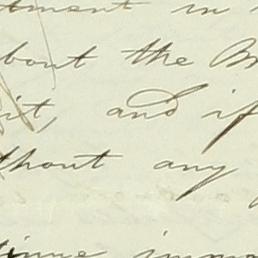 tment in
bout the B
it, and if
thout any
tinue imm